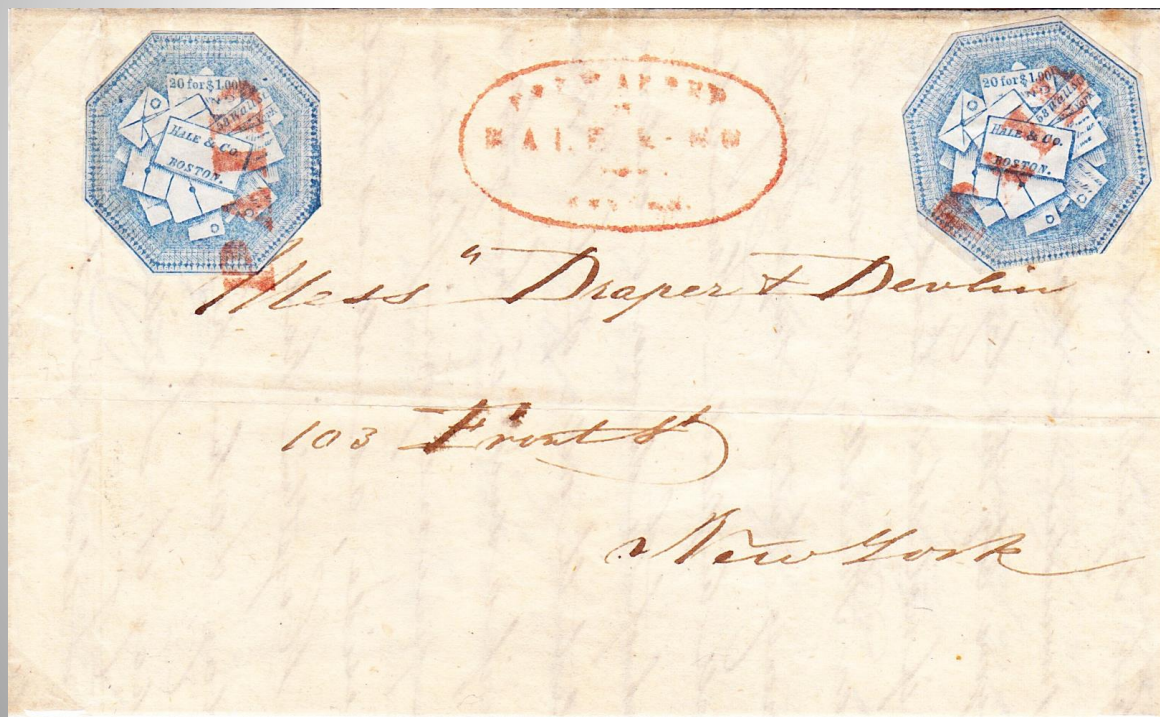 20 for $1.00
HALE & Co.
BOSTON.
PAID
FORWARDED
HALE & CO
20 for $1.00
HALE & Co.
BOSTON.
PAID
Mess " Draper & Devlin
103 Front St
New York